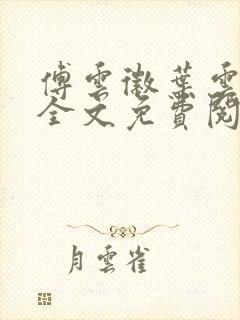 傅雲徽葉雲
全文免費閱
月雲雀